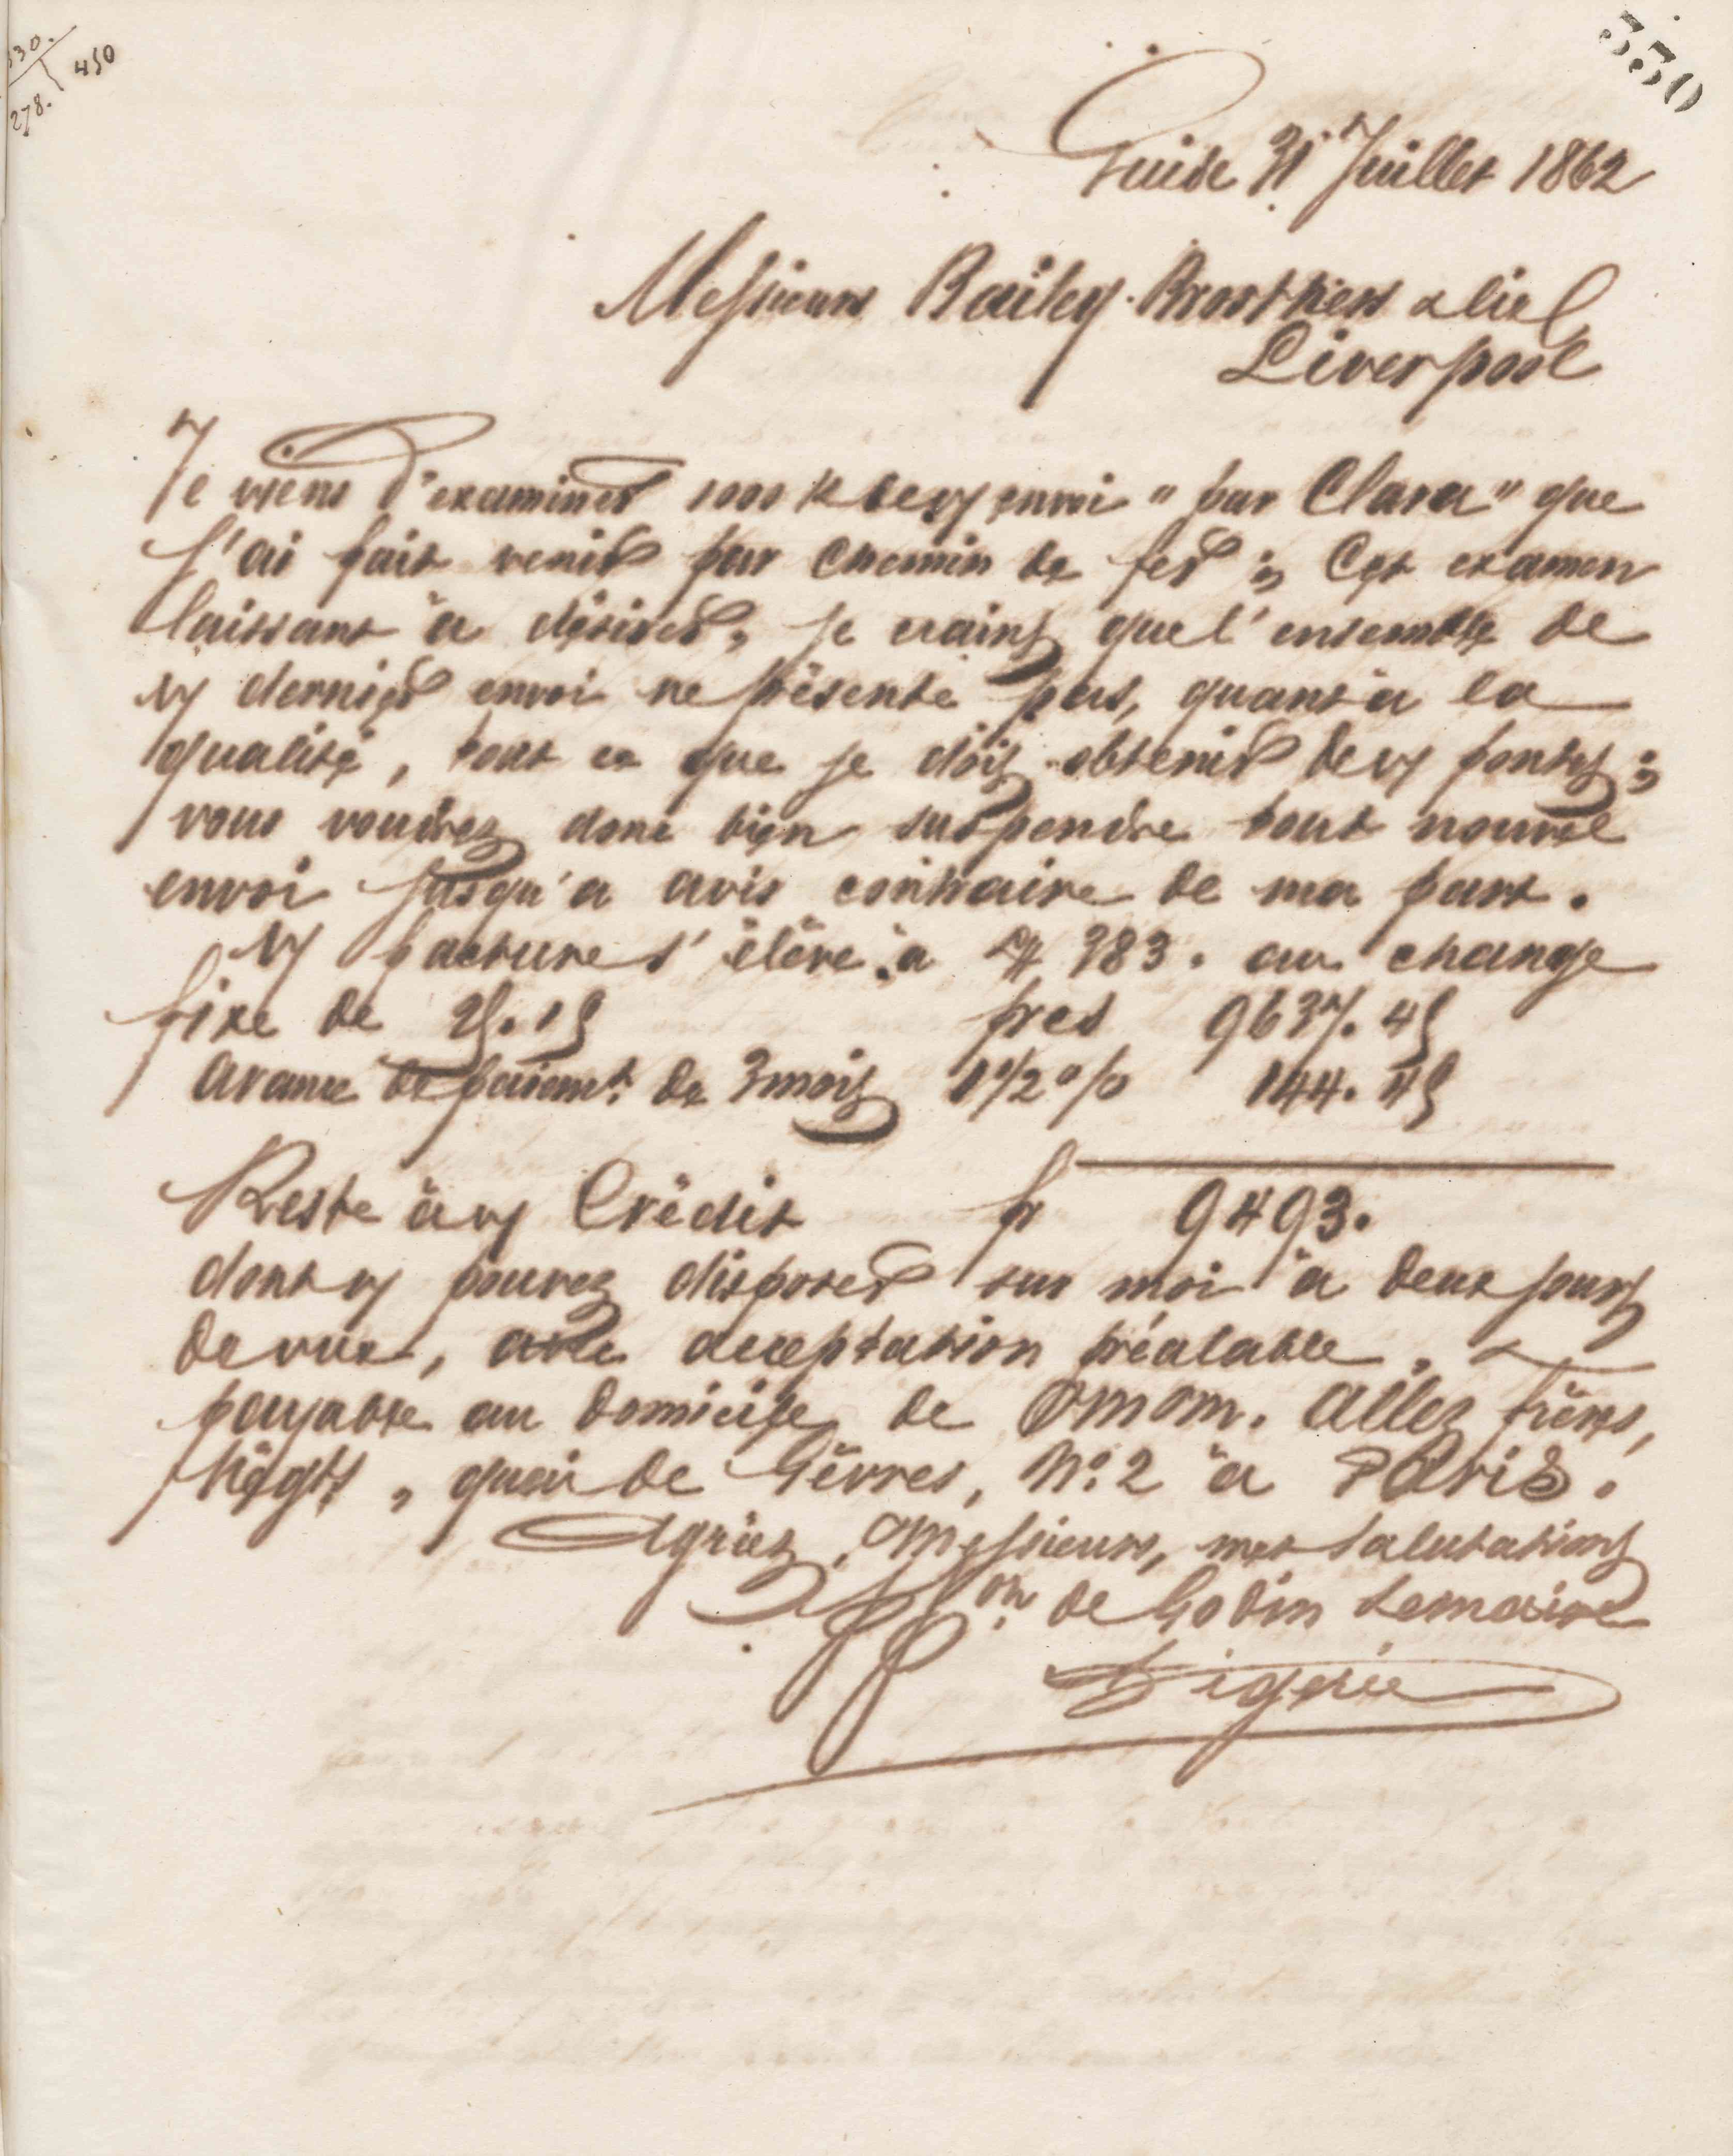 330.
278.
450
330
Guise 31 Juillet 1862
Messieurs Bailey Brosthers & Cie
Liverpool
Je viens d'examiner 1000 k de vs envoi " par Clara " que
j'ai fait venir par chemin de fer ; Cet examen
laissant à désirer, je crains que l'ensemble de
vs dernier envoi ne présente pas, quant à la
qualité, tout ce que je dois obtenir de vs fontes ;
vous voudrez donc bien suspendre tout nouvel
envoi jusqu'à avis contraire de ma part.
Vs facture s'élève à £ 383. au change
fixe de 25.15 frcs 9637.45
avance de paiemt. de 3 mois 1 1/2 % 144.45
Reste à vs Crédit fr 9493.
dont vs pouvez disposer sur moi à deux jours
de vue, avec acceptation préalable,
payable au domicile de MM. Allez frères,
Négts, quai de Gèvres, No. 2 à Paris.
Agréez, Messieurs, mes salutations
on de Godin Lemaire